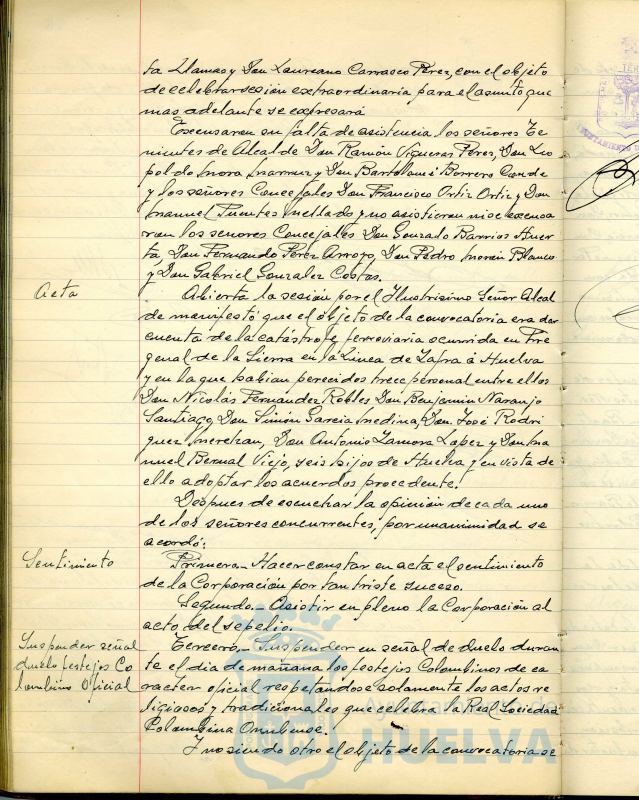 ta Llamas y Don Laureano Carrasco Perez, con el objeto
de celebrar sesión extraordinaria para el asunto que
mas adelante se expresará
Excusaron su falta de asistencia los señores Te
nientes de Alcalde Don Ramón Vigueras Perez, Don Leo
poldo Mora Marruz y Don Bartolomé Borrero Conde
y los señores Concejales Don Francisco Ortiz Ortiz y Don
Manuel Puentes Mellado y no asistieron ni se excusa
ron los señores Concejales Don Gonzalo Barrios Huer
ta, Don Fernando Perez Arroyo, Don Pedro Morón Blanco
y Don Gabriel Gonzalez Costas.
Acta
Abierta la sesión por el Ilustrisimo Señor Alcal
de manifestó que el objeto de la convocatoria era dar
cuenta de la catástrofe ferroviaria ocurrida en Fre
genal de la Sierra en la Linea de Zafra á Huelva
y en la que habian perecidos trece personal entre ellos
Don Nicolás Fernandez Robles Don Benjamin Naranjo
Santiago, Don Simón Garcia Medina, Don José Rodri
guez Merchan, Don Antonio Zamora Lopez y Don Ma
nuel Bernal Viejo, seis hijos de Huelva y en vista de
ello adoptar los acuerdos procedente.
Despues de escuchar la opinión de cada uno
de los señores concurrentes, por unanimidad se
acordó:
Sentimiento
Primero.- Hacer constar en acta el sentimiento
de la Corporación por tan triste suceso.
Segundo.- Asistir en pleno la Corporación al
acto del sepelio.
Suspender señal
duelo festejos Co
lombino Oficial
Tercero.- Suspender en señal de duelo duran
te el dia de mañana los festejos Colombinos de ca
racter oficial respetandose solamente los actos re
ligiosos y tradicionales que celebra la Real Sociedad
Colombina Onubense.
Y no siendo otro el objeto de la convocatoria se
HUELVA